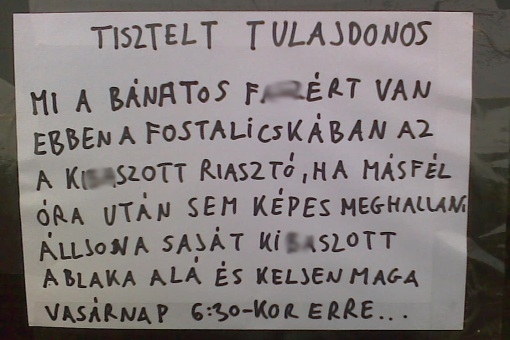 TISZTELT TULAJDONOS
MI A BÁNATOS VAN
EBBEN A FOSTALICSKÁBAN AZ
A KIBASZOTT RIASZTÓ, HA MÁSFÉL
ÓRA UTÁN SEM KÉPES MEGHALLANI
ÁLLJON A SAJÁT KIBASZOTT
ABLAKA ALÁ ÉS KELJEN MAGA
VASÁRNAP 6:30-KOR ERRE...